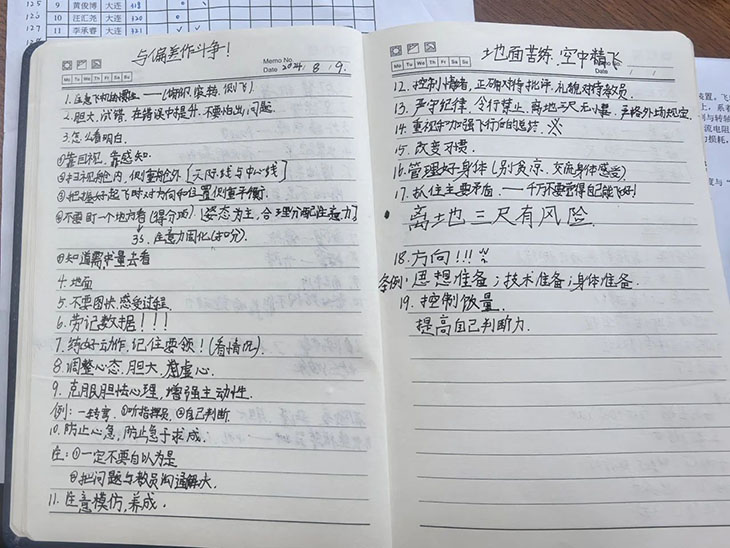 9 黄俊博 大连 418
125 10 汪汇尧 大连 320
126 11 李承睿 大连 320
与偏差作斗争!
Memo No.
Mo Tu We Th Fr Sa Su
Date 2024. 8. 9.
1. 注意飞机的惯性 (俯仰, 滚转, 侧飞).
2. 胆大, 试错, 在错误中提升, 不要怕出问题.
3. 怎么看明白.
①靠目视, 靠感知.
②扫视舱内, 侧重舱外 [天际线与中心线]
③把握好起飞时对方向和位置侧重平衡.
④不要盯一个地方看 (得分项) [姿态为主, 合理分配注意力]
3s. 注意力固化 (扣分).
⑤知道需求量去看
4. 地面
5. 不要图快, 感受过程
6. 劳记数据!!!
7. 练好动作, 记住要领! (看情况).
8. 调整心态, 胆大, 虚心.
9. 克服胆怯心理, 增强主动性.
例: 一转弯, ①听指挥员, ②自己判断.
10. 防止心急, 防止急于求成.
注: ①一定不要自以为是
②把问题与教员沟通解决.
11. 注意模仿, 养成.
地面苦练, 空中精飞
Memo No.
Mo Tu We Th Fr Sa Su
Date / /
12. 控制情绪, 正确对待批评, 礼貌对待教员.
13. 严守纪律, 令行禁止, 离地三尺无小事, 严格外场规定.
14. 重视和加强飞行后的总结. ※
15. 改变习惯.
16. 管理好身体 (别贪凉, 交流身体感受)
17. 抓住主要矛盾. ——千万不要觉得自己能飞好!
离地三尺有风险.
18. 方向!!!
条例: 思想准备; 技术准备; 身体准备.
19. 控制饭量.
提高自己判断力.